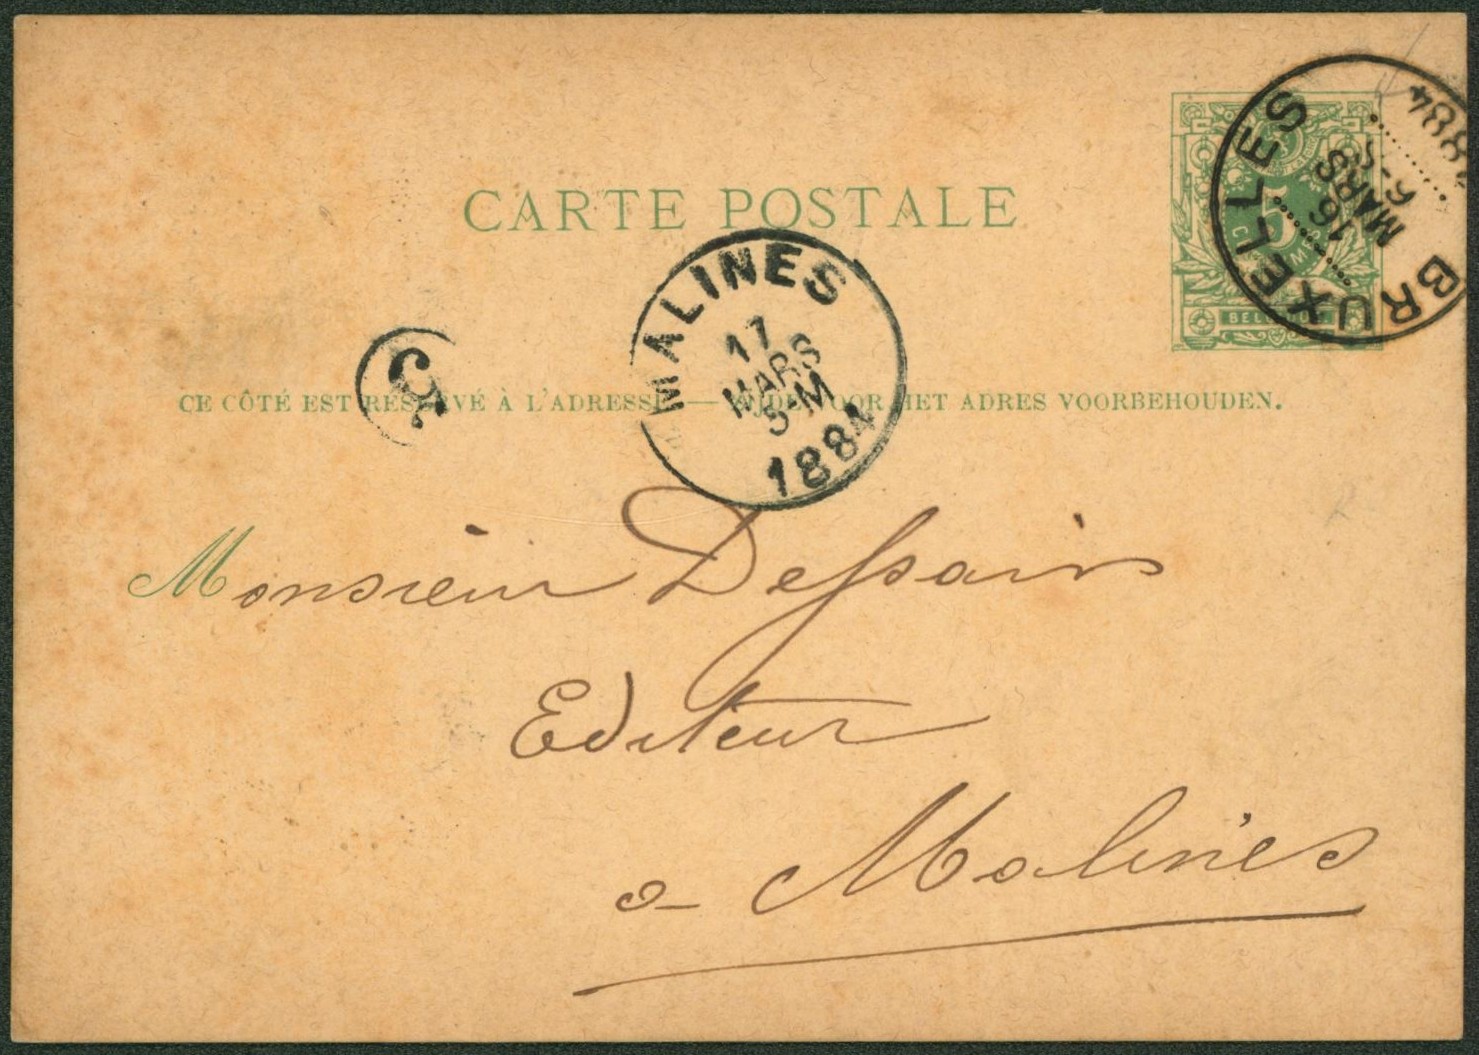 CARTE POSTALE
5
BRUXELLES
16
MARS
1884
MALINES
17
MARS
5-M
1884
CE CÔTÉ EST RÉSERVÉ À L'ADRESSE — ZIJDE VOOR HET ADRES VOORBEHOUDEN.
Monsieur Dessain
Editeur
a Malines